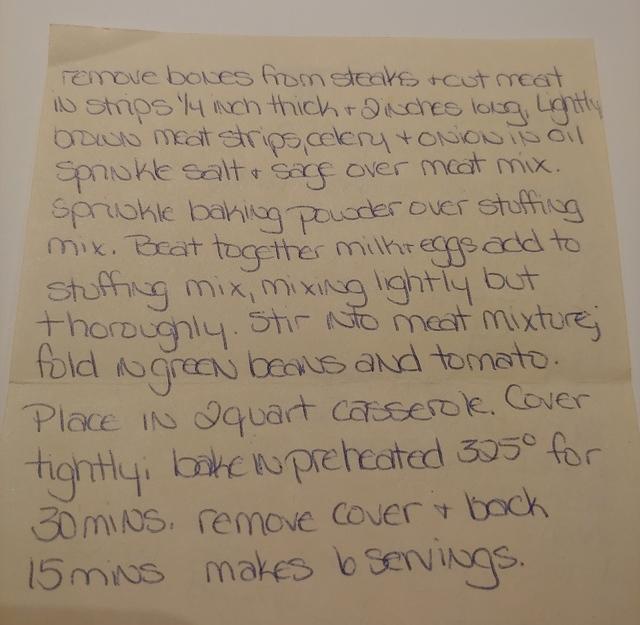 remove bones from steaks + cut meat
in strips 1/4 inch thick + 2 inches long, Lightly
brown meat strips, celery + onion in oil
Sprinkle salt + sage over meat mix.
Sprinkle baking powder over stuffing
mix. Beat together milk + eggs add to
stuffing mix, mixing lightly but
thoroughly. Stir into meat mixture;
fold in green beans and tomato.
Place in 2 quart casserole. Cover
tightly; bake in preheated 325° for
30 mins. remove cover + back
15 mins makes 6 servings.